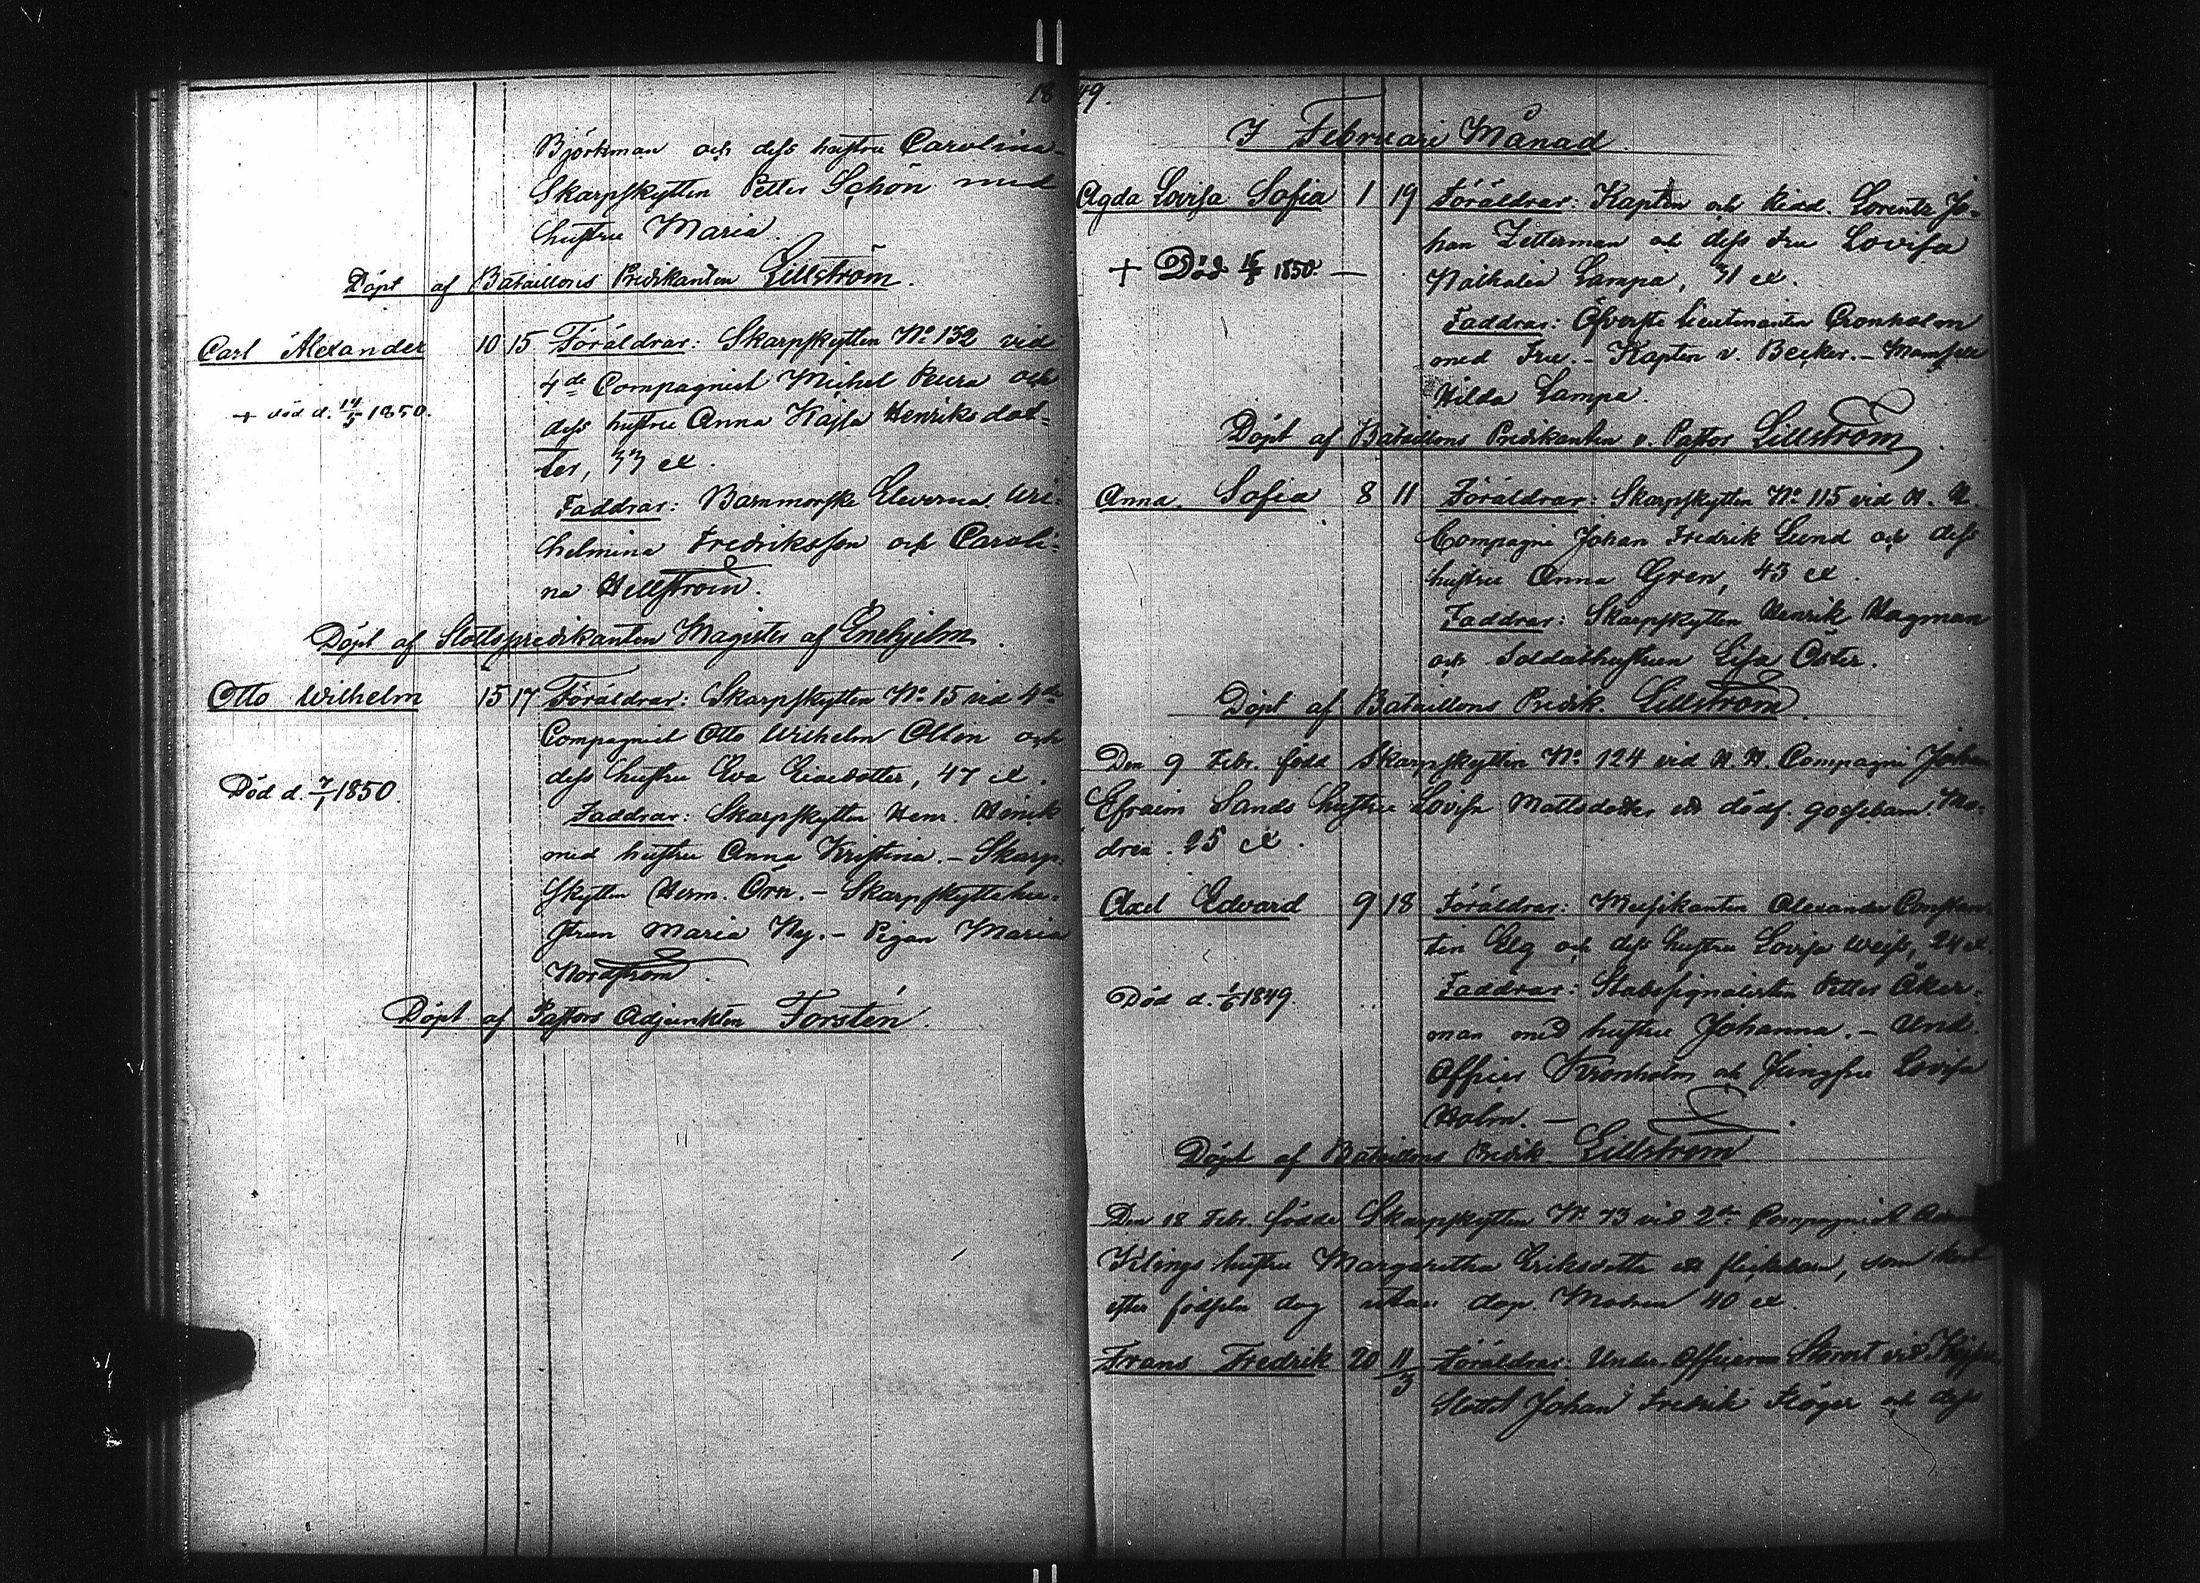 1849.
Björkman och dess hustru Carolina
Skarpskytten Petter Schön med
hustru Maria.
Döpt af Bataillons Predikanten Lillström.
Carl Alexander 10 15 Föräldrar: Skarpskytten No 132 vid
4de Compagniet Michel Peura och
+ död d. 14/5 1850.
dess hustru Anna Kajsa Henriksdot-
ter, 33 år.
Faddrar: Barnmorske Eleverna Wil-
helmina Fredriksson och Caroli-
na Hellström.
Döpt af Slottspredikanten Magister af Enehjelm.
Otto Wilhelm 15 17 Föräldrar: Skarpskytten No 15 vid 4de
Compagniet Otto Wilhelm Ollin och
dess hustru Eva, 47 år.
Död d. 7/1 1850.
Faddrar: Skarpskytten Henr.
med hustru Anna Kristina. – Skarp-
skytten Herm. Örn. – Skarpskyttehu-
strun Maria Ny. – Pigan Maria
Nordström.
Döpt af Pastors Adjunkten Forstén.
I Februari Månad
Agda Lovisa Sofia 1 19 Föräldrar: Kapten och Lorentz Jo-
han Zitterman och dess Fru Lovisa
+ Död 1850. —
Nathalia Lampa, 31 år.
Faddrar: Öfverste Lieutenanten Cronholm
med Fru. – Kapten v. Becker. – Mamsell
Hilda Lampa.
Döpt af Bataillons Predikanten v. Pastor Lillström
Anna Sofia 8 11 Föräldrar: Skarpskytten No 115 vid
Compagni Johan Fredrik Lund och dess
hustru Anna Gren, 43 år.
Faddrar: Skarpskytten Henrik Hagman
och Soldathustrun Lisa Öster.
Döpt af Bataillons Predik. Lillström
Den 9 Febr. född Skarpskytten No 124 vid Compagni Johan
Efraim Sands hustru Lovisa Mattsdotter ett dödf. gossebarn. Mo-
dren 25 år.
Axel Edvard 9 18 Föräldrar: Musikanten Alexander Constan-
tin Elg och dess hustru Lovisa Weiss, 24 år.
Död d. 1/6 1849.
Faddrar: Stabssignalisten Petter Åker-
man med hustru Johanna. – Und.
Officer Kronholm och Jungfru Lovisa
Holm. —
Döpt af Bataillons Predik. Lillström
Den 18 Febr. födde Skarpskytten No 73 vid 2dra Compagniet
Kilings hustru Margaretha Eriksdotter ett flickebarn, som
efter födseln dog utan dop. Modren 40 år.
Frans Fredrik 20 11/3 Föräldrar Under-Officeren vid
Slottet Johan Fredrik Flöger och dess